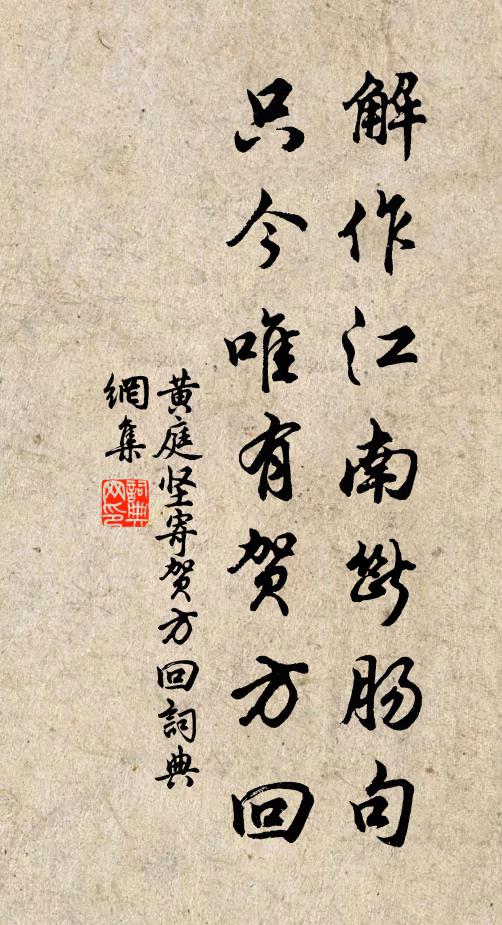 解作江南断肠句
只今唯有贺方回
黄庭坚寄贺方回詞典
網集
詞典网印